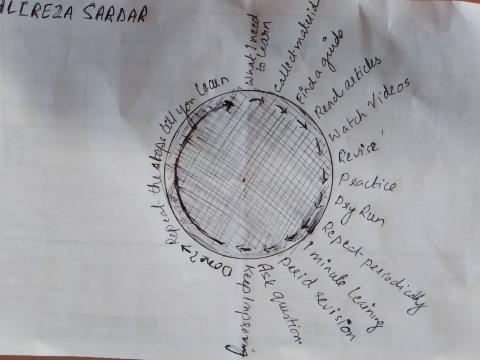 ALIREZA SARDAR
What I need
to learn
Collect material
Find a guide
Read articles
Watch Videos
Revise
Practice
Dry Run
Repeat periodically
1 minute learning
Ask question
Keep improving
Done?
Repeat the steps till you learn